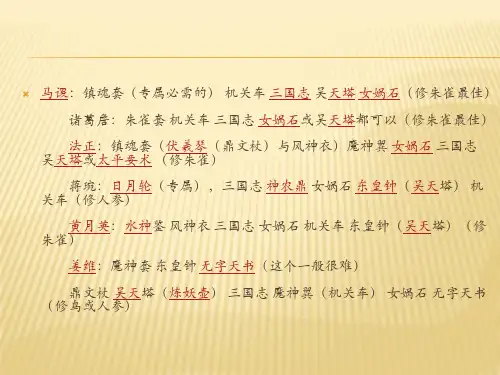 马谡：镇魂套（专属必需的） 机关车 三国志 吴天塔 女娲石（修朱雀最佳）
诸葛詹：朱雀套 机关车 三国志 女娲石或吴天塔都可以（修朱雀最佳）
法正：镇魂套（伏羲琴（鼎文杖）与风神衣）魔神翼 女娲石 三国志
吴天塔或太平要术 （修朱雀）
蒋琬：日月轮（专属），三国志 神农鼎 女娲石 东皇钟（吴天塔） 机
关车（修人参）
黄月英：水神鉴 风神衣 三国志 女娲石 机关车 东皇钟（吴天塔）（修
朱雀）
姜维：魔神套 东皇钟 无字天书（这个一般很难）
鼎文杖 吴天塔（炼妖壶） 三国志 魔神翼（机关车） 女娲石 无字天书
（修鸟或人参）